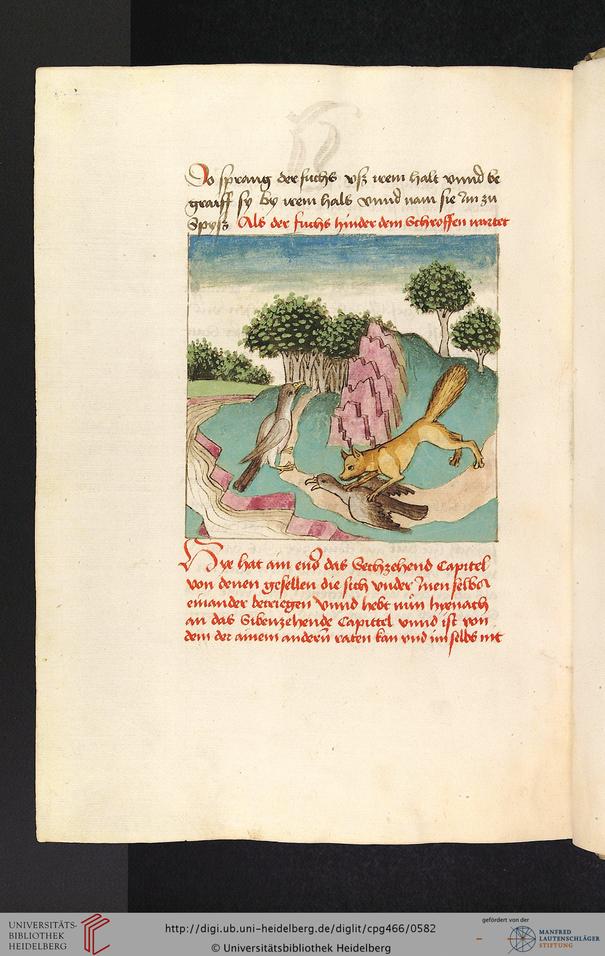 Do sprang der fuchs vß irem halt vnnd be
graiff sy by irem hals vnnd nam sie Im zu
Spyß Als der fuchs hinder dem Schroffen wartet
Hye hat ain end das Sechzehend Capitel
von denen gesellen die sich vnder Inen selbs
einander betriegen vnnd hebt nun hienach
an das Sibenzehende Capittel vnnd ist von
dem der ainem andern raten kan vnd im selbs nit
UNIVERSITÄTS-
BIBLIOTHEK
HEIDELBERG
http://digi.ub.uni-heidelberg.de/diglit/cpg466/0582
© Universitätsbibliothek Heidelberg
gefördert von der
MANFRED
LAUTENSCHLÄGER
STIFTUNG